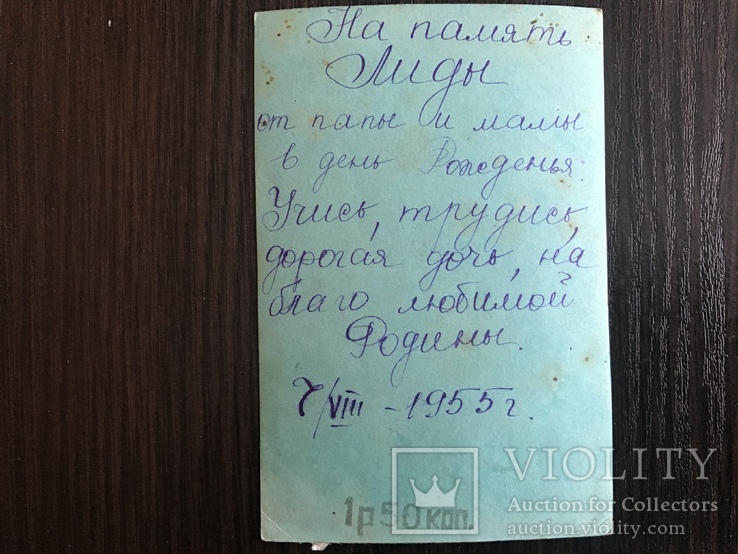 На память
Лиды
от папы и мамы
в день Рожденья.
Учись, трудись,
дорогая дочь, на
благо любимой
Родины.
7/VIII - 1955 г.
1р50коп.
VIOLITY
Auction for Collectors
auction.violity.com